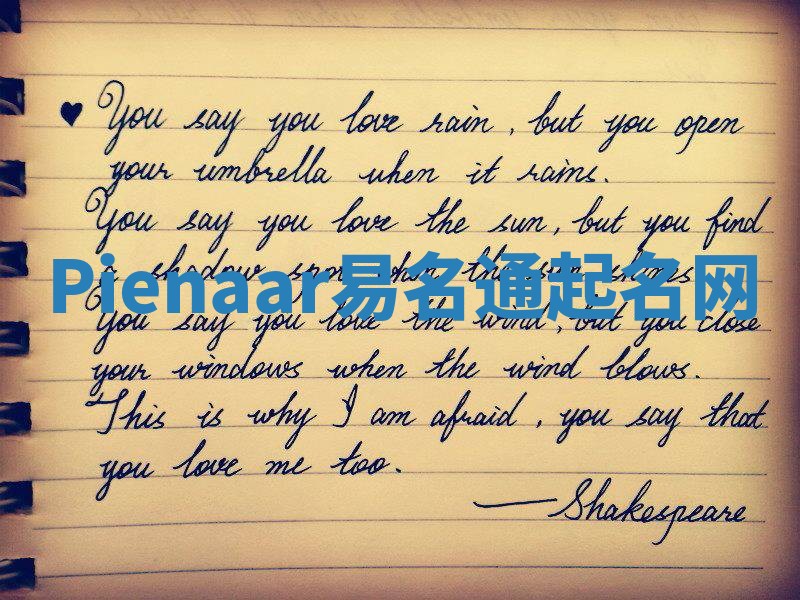 ♥ You say you love rain, but you open
your umbrella when it rains.
You say you love the sun, but you find
a shadow spot when the sun shines
Pienaar易名通起名网
You say you love the wind, but you close
your windows when the wind blows.
This is why I am afraid, you say that
you love me too.
— Shakespeare